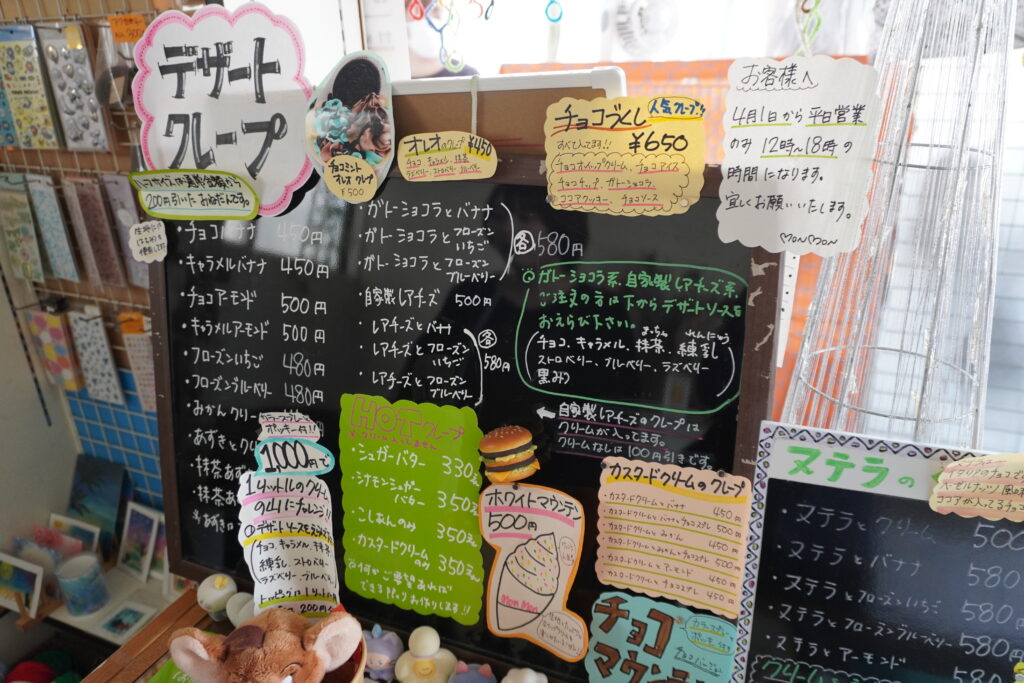 デザート
クレープ
200円引いたおねだんです。
チョコミント
オレオクレープ
¥500
オレオのクレープ ¥450
チョコ、キャラメル、抹茶
ラズベリー、ストロベリー、ブルーベリー
チョコづくし
人気クレープ!!
すべて入ってます!!
¥650
チョコホイップクリーム、チョコアイス
チョコチップ、ガトーショコラ、
ココアクッキー、チョコソース
お客様へ
4月1日から平日営業
のみ12時〜18時の
時間になります。
宜しくお願いいたします。
MonMon
・チョコバナナ 450円
・キャラメルバナナ 450円
・チョコアーモンド 500円
・キャラメルアーモンド 500円
・フローズンいちご 480円
・フローズンブルーベリー 480円
・みかんクリー
・あずきとク
・抹茶あず
・抹茶あ
・ガトーショコラとバナナ
・ガトーショコラとフローズン
いちご
・ガトーショコラとフローズン
ブルーベリー
各580円
・自家製レアチーズ 500円
・レアチーズとバナナ
・レアチーズとフローズン
いちご
・レアチーズとフローズン
ブルーベリー
各580円
◎ガトーショコラ系、自家製レアチーズ系、
ご注文の方は下からデザートソースを
おえらび下さい。
チョコ、キャラメル、抹茶、練乳
まっちゃ れんにゅう
ストロベリー、ブルーベリー、ラズベリー
黒みつ
←自家製レアチーズのクレープは
クリームが入ってます。
クリームなしは100円引きです。
ポッキー付!!
1,000円で
1リットルのクリーム
にチャレンジ!!
チョコ、キャラメル、抹茶
練乳、ストロベリー
ラズベリー、ブルーベリー
HOTクレープ
・シュガーバター 330円
・シナモンシュガー
バター 350円
・こしあんのみ 350円
・カスタードクリーム
のみ 350円
ホワイトマウンテン
500円
Mon Mon
カスタードクリームのクレープ
・カスタードクリームとバナナ 450円
・カスタードクリームとバナナとチョコスプレ 500円
・カスタードクリームとみかん 450円
・カスタードクリームとみかんとチョコスプレ 500円
・カスタードクリームとアーモンド 450円
・カスタードクリームとチョコスプレ 450円
チョコ
マウン
ヌテラの
・ヌテラとクリーム 500
・ヌテラとバナナ 580
・ヌテラとフローズンいちご 580
・ヌテラとフローズンブルーベリー 580
・ヌテラとアーモンド 580